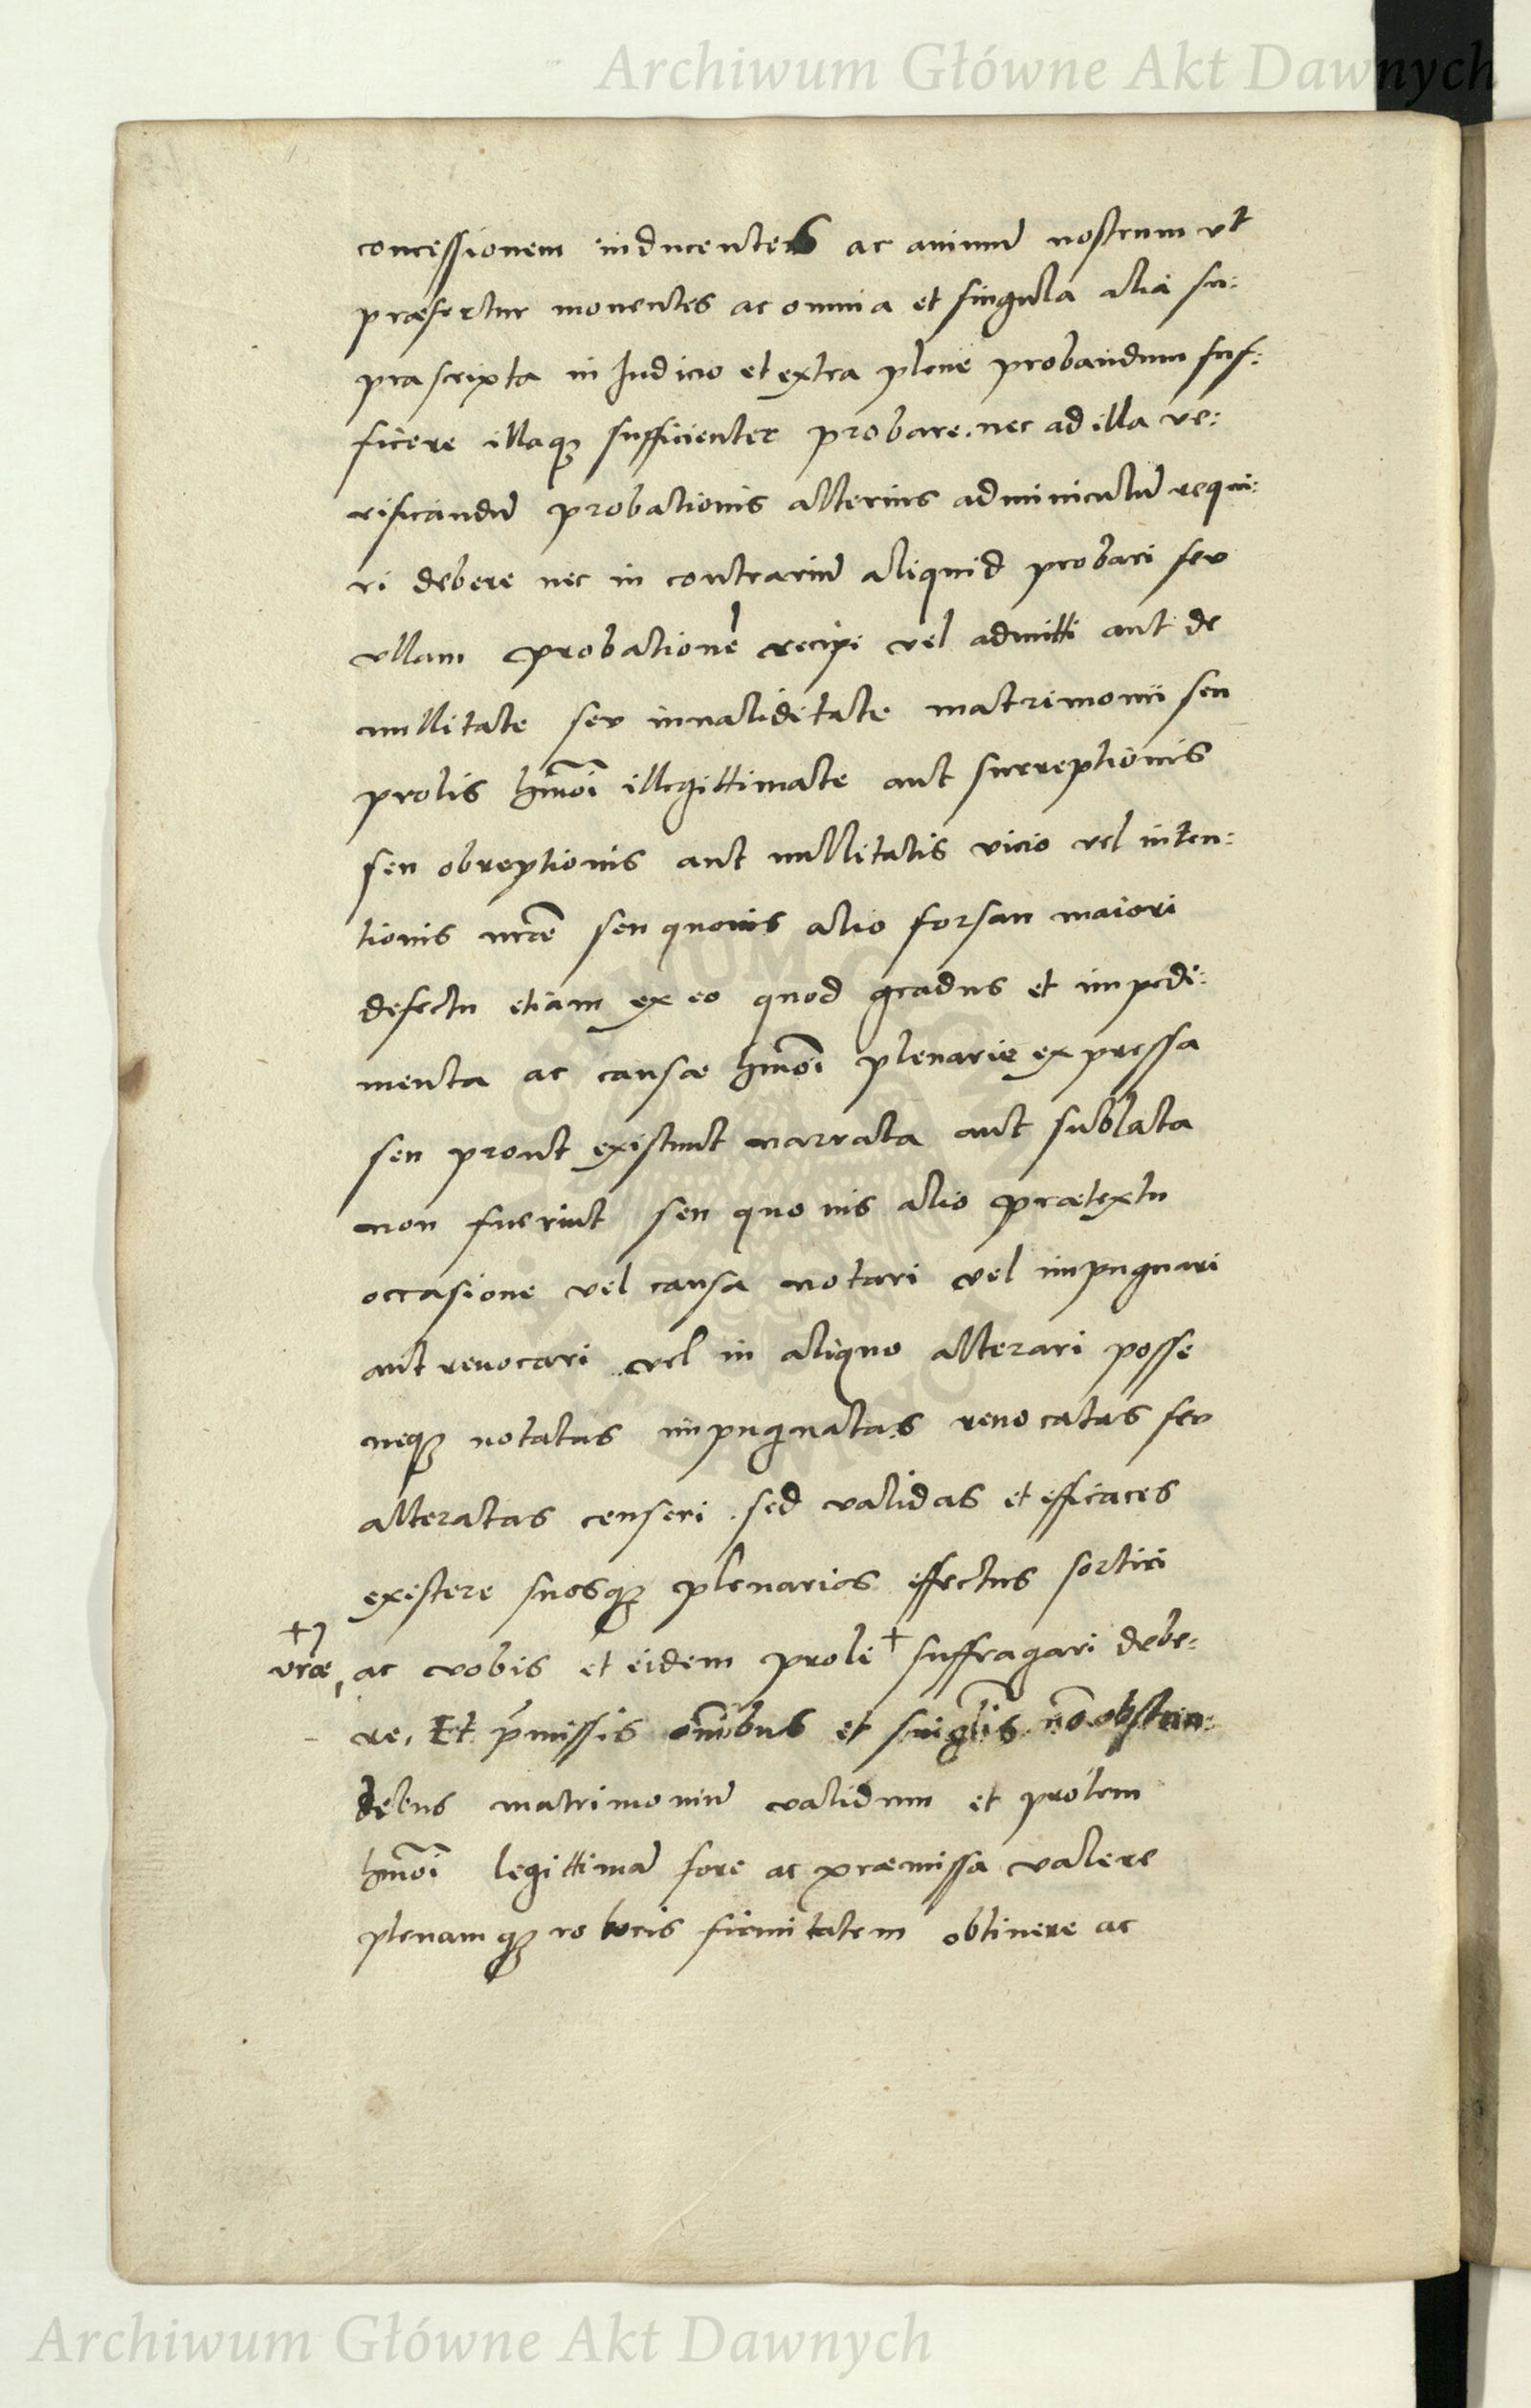 Archiwum Główne Akt Dawnych
concessionem inducentes ac animū nostrum vt
præfertur mouentes ac omnia et singula alia su:
prascripta in Iudicio et extra plene probandum suf:
ficere illaqꝫ sufficienter probare. nec ad illa ve:
rificandū probationis alterius adminiculū requi:
ri debere nec in contrariū aliquid probari seu
vllam probationē recipi vel admitti aut de
nullitate seu inualiditate matrimonii seu
prolis hmōi illegittimate aut surreptionis
seu obreptionis aut nullitatis vicio vel inten:
tionis nr̄æ seu quouis alio forsan maiori
defectu etiam ex eo quod gradus et impedi:
menta ac causæ hmōi plenarie expressa
seu prout existunt narrata aut sublata
non fuerint seu quo uis alio prætextu
occasione vel causa notari vel impugnari
aut reuocari vel in aliquo alterari posse
neqꝫ notatas impugnatas reuocatas seu
alteratas censeri. sed validas et efficaces
existere suosqꝫ plenarios effectus sortiri
+ vr̄æ, ac vobis et eidem proli + suffragari debe:
re, Et p̄missis om̄ibus et singlīs nō obstan:
tibus matrimoniū validum et prolem
hmōi legittimā fore ac præmissa valere
plenamqꝫ roboris firmitatem obtinere ac
Archiwum Główne Akt Dawnych